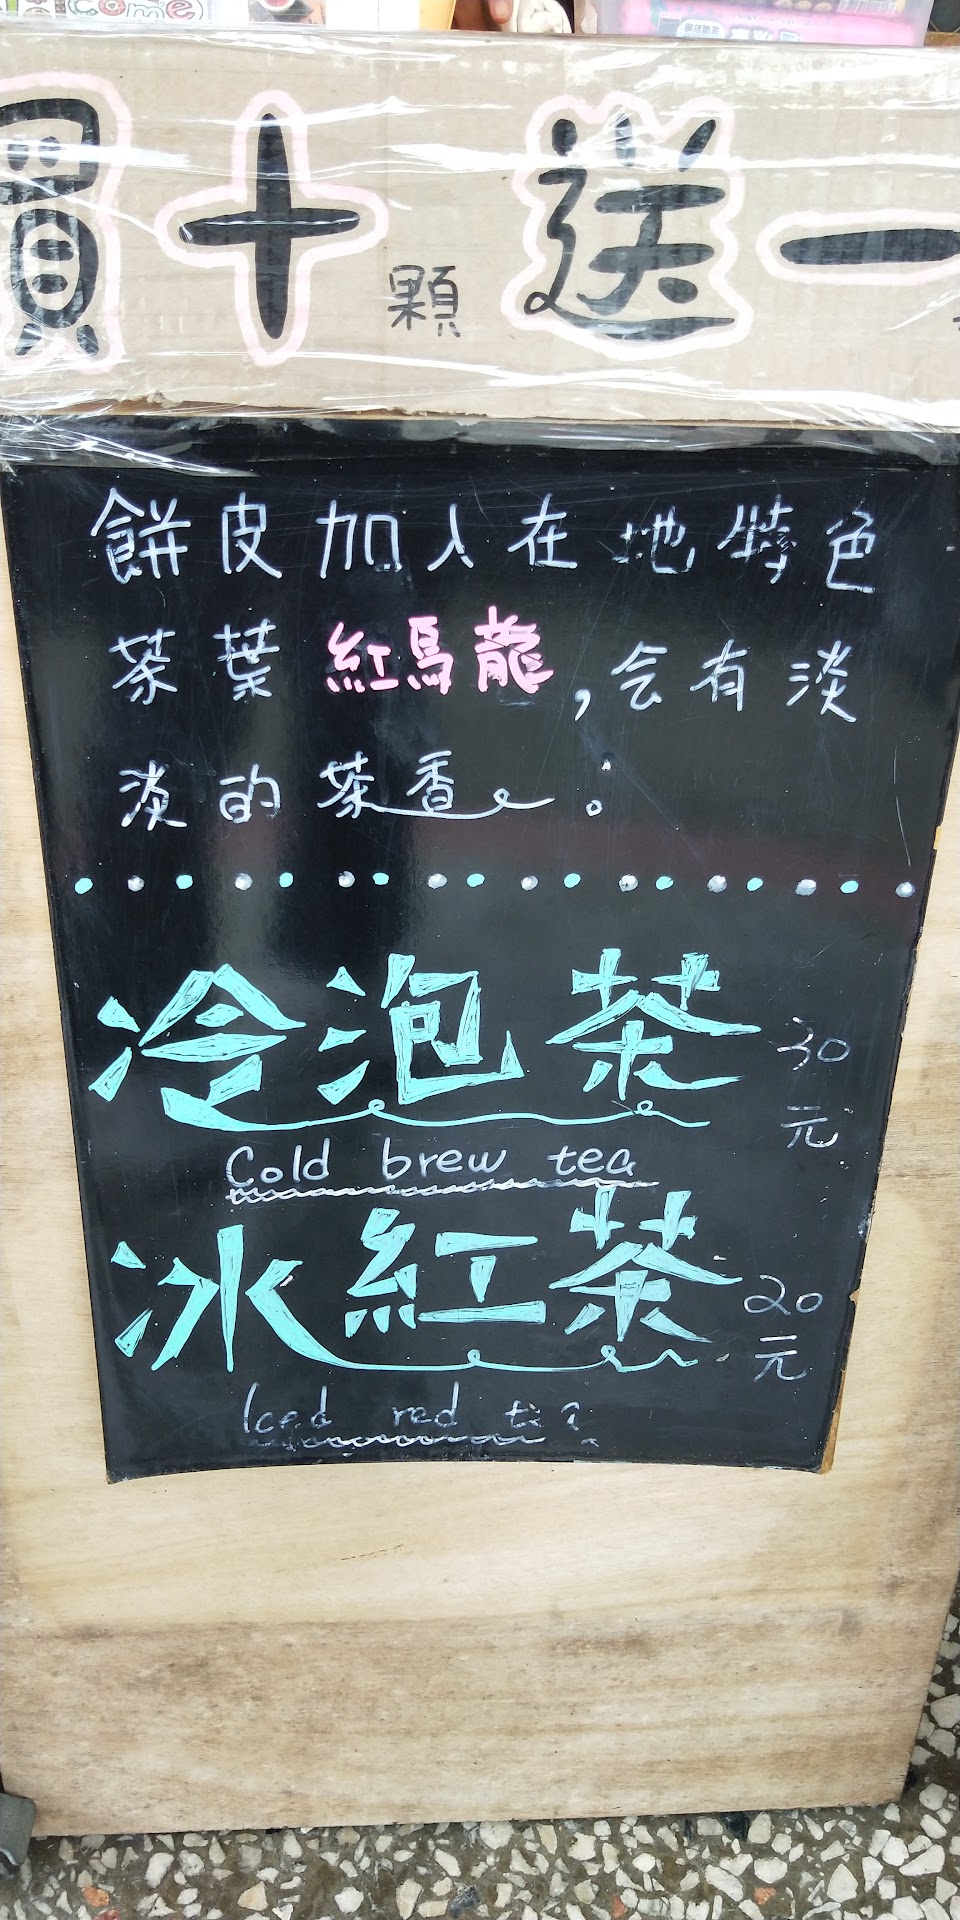 come
買十顆送一
餅皮加入在地特色
茶葉紅烏龍,会有淡
淡的茶香。
冷泡茶 30元
Cold brew tea
冰紅茶 20元
Iced red